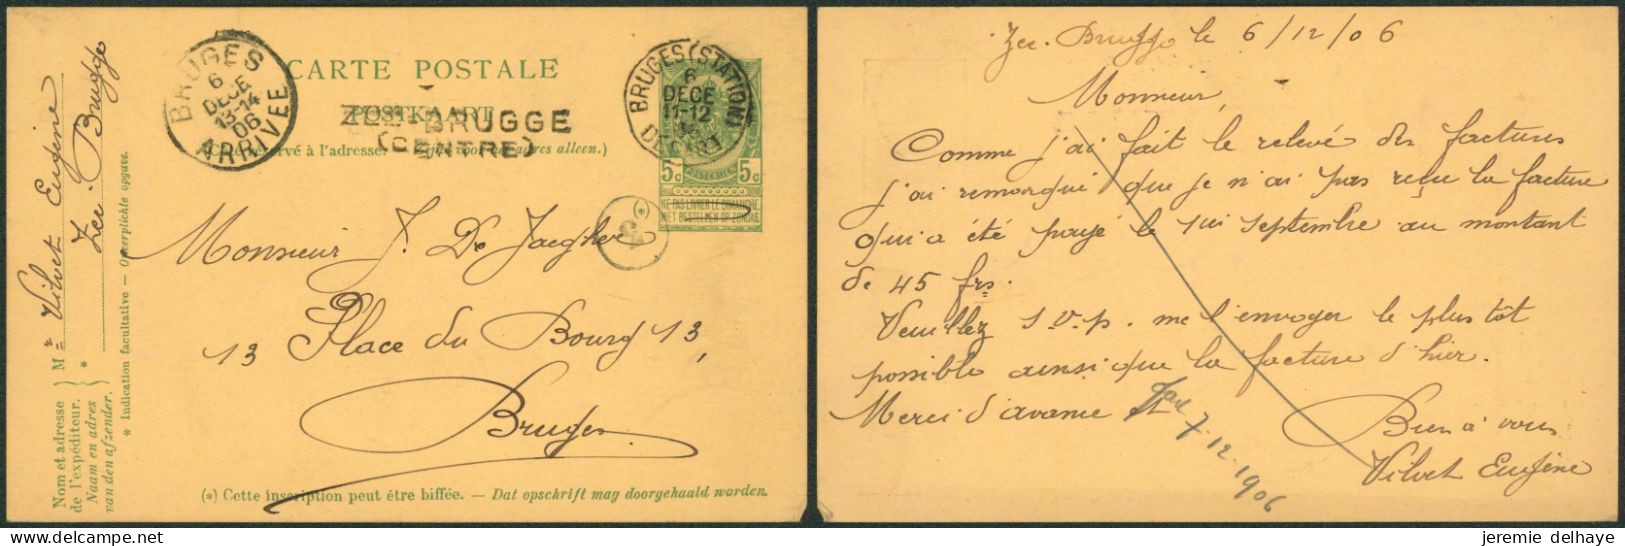 CARTE POSTALE
POSTKAART
ZEE-BRUGGE
(CENTRE)
(Côté réservé à l'adresse. — Zijde voor het adres alleen.)
BRUGES
6
DECE
13-14
06
ARRIVEE
BRUGES (STATION)
6
DECE
11-12
06
DEPART
5c POSTERIJEN 5c
NE PAS LIVRER LE DIMANCHE
NIET BESTELLEN OP ZONDAG
(*)
Monsieur J. De Jaegher
13 Place du Bourg 13,
Bruges
(*) Cette inscription peut être biffée. — Dat opschrift mag doorgehaald worden.
Nom et adresse
de l'expéditeur.
Naam en adres
van den afzender.
M Vilvet Eugène
Zee-Brugge
* Indication facultative — Overplichte opgave.
Zee-Brugge le 6/12/06
Monsieur,
Comme j'ai fait le relevé des factures
j'ai remarqué que je n'ai pas reçu la facture
qui a été payé le 1er septembre au montant
de 45 frs.
Veuillez s.v.p. me l'envoyer le plus tôt
possible ainsi que la facture d'hier.
Merci d'avance et
Bien à vous
Vilvet Eugène
7-12-1906
jeremie delhaye